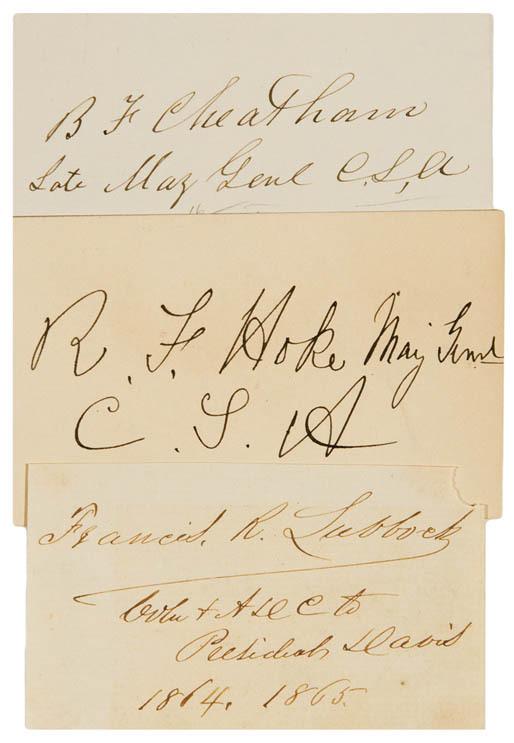 B F Cheatham
Late Maj Genl C.S,A
R. F. Hoke Maj Genl
C. S. A
Francis. R. Lubbock
Col & A D C to
President Davis
1864. 1865.